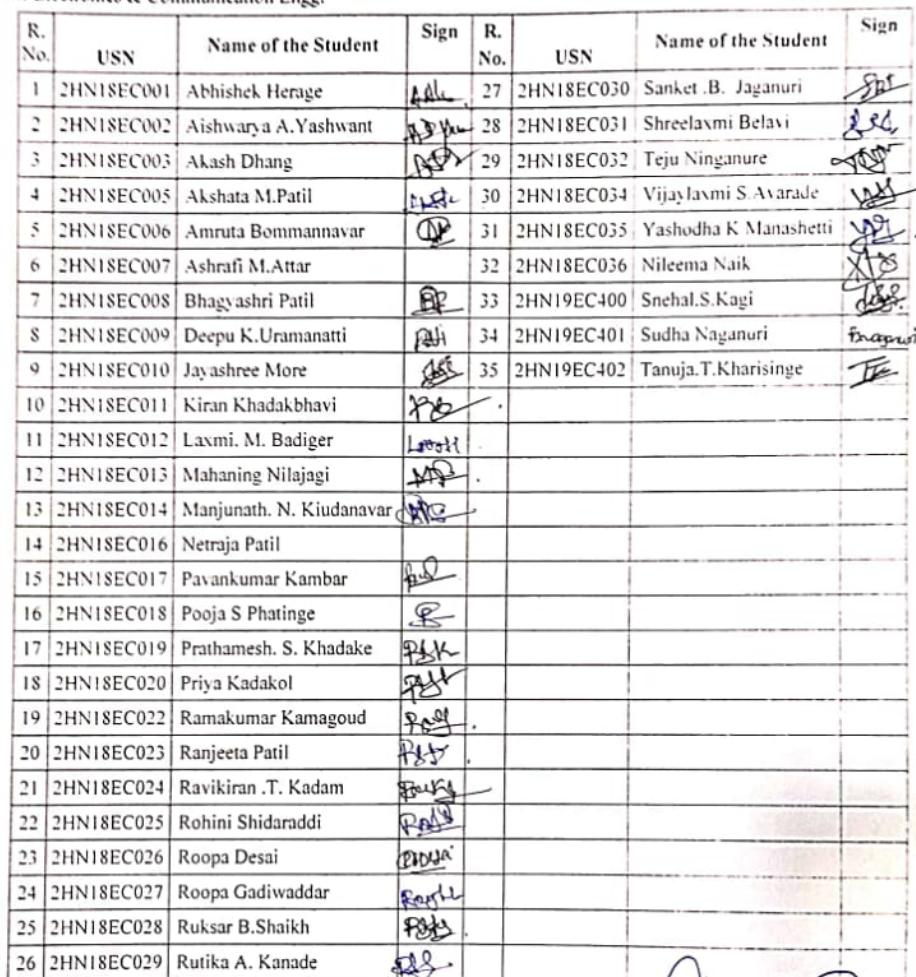 Communication Engg.
R. No. USN Name of the Student Sign R. No. USN Name of the Student Sign
1 2HN18EC001 Abhishek Herage 27 2HN18EC030 Sanket .B. Jaganuri
2 2HN18EC002 Aishwarya A.Yashwant 28 2HN18EC031 Shreelaxmi Belavi
3 2HN18EC003 Akash Dhang 29 2HN18EC032 Teju Ninganure
4 2HN18EC005 Akshata M.Patil 30 2HN18EC034 Vijaylaxmi S.Avarade
5 2HN18EC006 Amruta Bommannavar 31 2HN18EC035 Yashodha K Manashetti
6 2HN18EC007 Ashrafi M.Attar 32 2HN18EC036 Nileema Naik
7 2HN18EC008 Bhagyashri Patil 33 2HN19EC400 Snehal.S.Kagi
8 2HN18EC009 Deepu K.Uramanatti 34 2HN19EC401 Sudha Naganuri
9 2HN18EC010 Jayashree More 35 2HN19EC402 Tanuja.T.Kharisinge
10 2HN18EC011 Kiran Khadakbhavi
11 2HN18EC012 Laxmi. M. Badiger
12 2HN18EC013 Mahaning Nilajagi
13 2HN18EC014 Manjunath. N. Kiudanavar
14 2HN18EC016 Netraja Patil
15 2HN18EC017 Pavankumar Kambar
16 2HN18EC018 Pooja S Phatinge
17 2HN18EC019 Prathamesh. S. Khadake
18 2HN18EC020 Priya Kadakol
19 2HN18EC022 Ramakumar Kamagoud
20 2HN18EC023 Ranjeeta Patil
21 2HN18EC024 Ravikiran .T. Kadam
22 2HN18EC025 Rohini Shidaraddi
23 2HN18EC026 Roopa Desai
24 2HN18EC027 Roopa Gadiwaddar
25 2HN18EC028 Ruksar B.Shaikh
26 2HN18EC029 Rutika A. Kanade